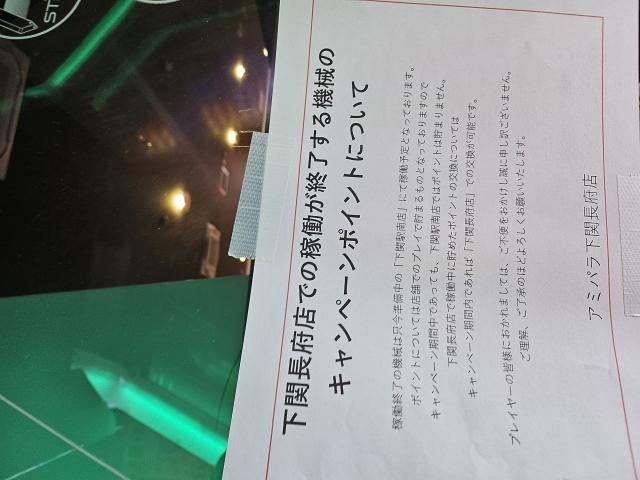 下関長府店での稼働が終了する機械の
キャンペーンポイントについて
稼働終了の機械は只今準備中の「下関駅南店」にて稼働予定となっております。
ポイントについては店舗でのプレイで貯まるものとなっておりますので
キャンペーン期間中であっても、下関駅南店ではポイントは貯まりません。
下関長府店で稼働中に貯めたポイントの交換については
キャンペーン期間内であれば「下関長府店」での交換が可能です。
プレイヤーの皆様におかれましては、ご不便をおかけし誠に申し訳ございません。
ご理解、ご了承のほどよろしくお願いいたします。
アミパラ下関長府店
ST